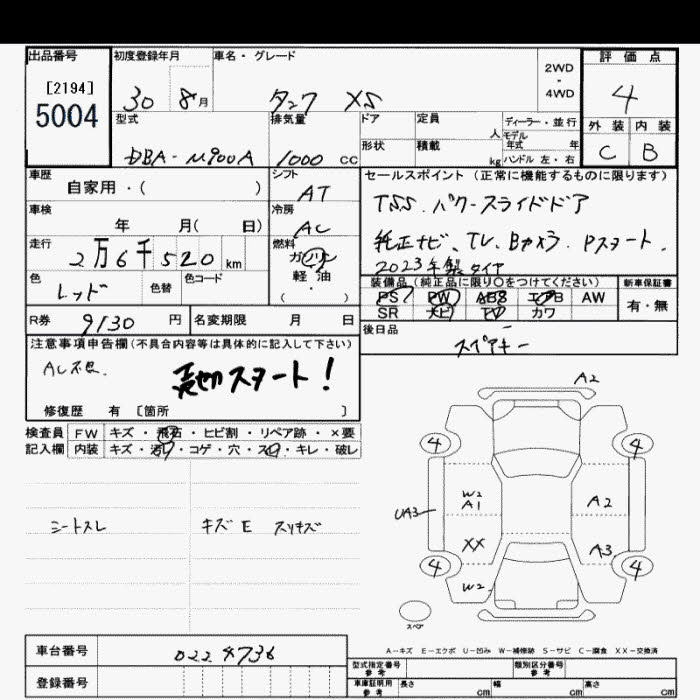 出品番号 初度登録年月 車名・グレード 評価点
[2194]
5004
30 8月 タンク XS 2WD・4WD 4
型式 排気量 ドア 定員 人 ディーラー・並行 外装 内装
モデル年式 年
DBA-M900A 1000 cc 形状 積載 kg ハンドル 左・右 C B
車歴 シフト セールスポイント (正常に機能するものに限ります)
自家用・( ) AT TSS、パワースライドドア
車検 冷房
年 月( 日) AC 純正ナビ、TV、Bカメラ、Pスタート、
走行 燃料
2万6千520km ガソリン 2023年製タイヤ
色 色替 色コード 軽油 装備品 (純正品に限り○をつけてください) 新車保証書
レッド ・ PS PW ABS エアB AW 有・無
( ) SR ナビ TV カワ
R券 9130円 名変期限 月 日 後日品
注意事項申告欄(不具合内容等は具体的に記入して下さい) スペアキー
AC不良 売切スタート!
修復歴 有 [箇所 ]
検査員 FW キズ・飛石・ヒビ割・リペア跡・×要
記入欄 内装 キズ・汚れ・コゲ・穴・スレ・キレ・破レ
A2
4 4
W2
A1 A2
UA3
シートスレ キズE スリキズ
XX A3
4 4
W2
スペア
A-キズ E-エクボ U-凹み W-補修跡 S-サビ C-腐食 XX-交換済
車台番号 0224736
型式指定番号 参考 類別区分番号 参考
登録番号 車庫証明用 参考 長さ cm 幅 cm 高さ cm